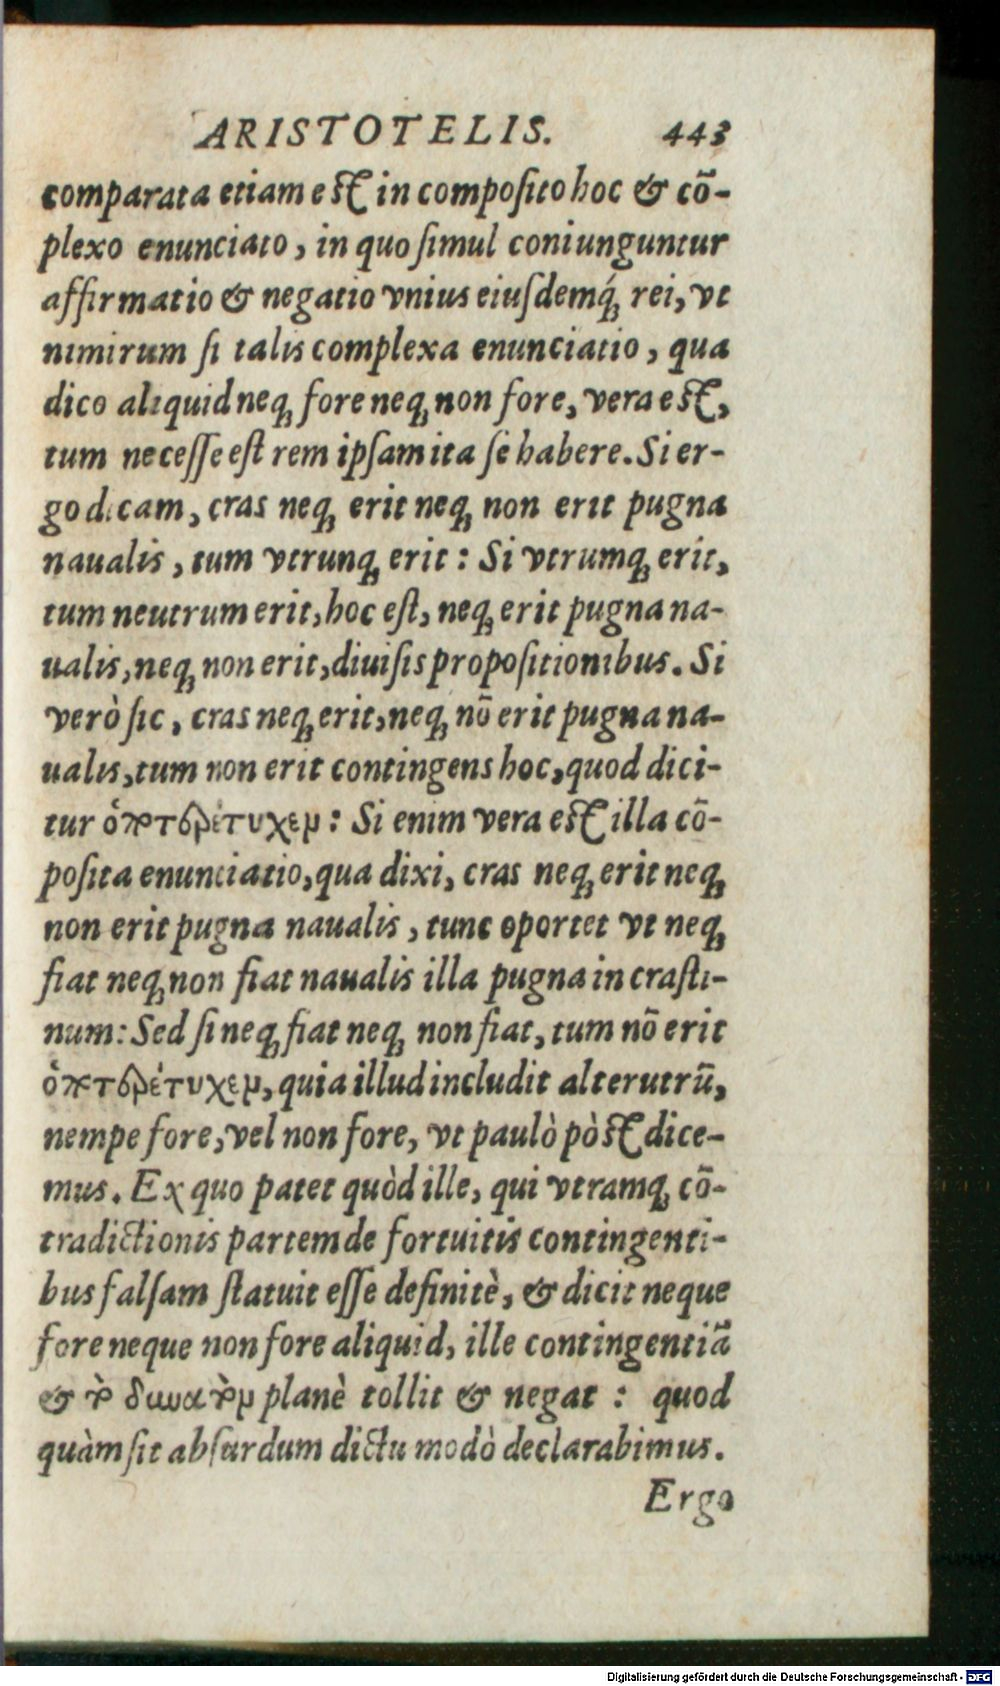 ARISTOTELIS. 443
comparata etiam est in composito hoc & cõ-
plexo enunciato, in quo simul coniunguntur
affirmatio & negatio vnius eiusdemq́; rei, vt
nimirum si talis complexa enunciatio, qua
dico aliquid neq; fore neq; non fore, vera est,
tum necesse est rem ipsam ita se habere. Si er-
go dicam, cras neq; erit neq; non erit pugna
naualis, tum vtrunq; erit: Si vtrumq; erit,
tum neutrum erit, hoc est, neq; erit pugna na-
ualis, neq; non erit, diuisis propositionibus. Si
verò sic, cras neq; erit, neq; nõ erit pugna na-
ualis, tum non erit contingens hoc, quod dici-
tur ὁπότερ᾽ ἔτυχεν: Si enim vera est illa cõ-
posita enunciatio, qua dixi, cras neq; erit neq;
non erit pugna naualis, tunc oportet vt neq;
fiat neq; non fiat naualis illa pugna in crasti-
num: Sed si neq; fiat neq; non fiat, tum nõ erit
ὁπότερ᾽ ἔτυχεν, quia illud includit alterutrũ,
nempe fore, vel non fore, vt paulò pòst dice-
mus. Ex quo patet quòd ille, qui vtramq; cõ-
tradictionis partem de fortuitis contingenti-
bus falsam statuit esse definitè, & dicit neque
fore neque non fore aliquid, ille contingentiã
& τὸ δυνατὸν planè tollit & negat: quod
quàm sit absurdum dictu modò declarabimus.
Ergo
Digitalisierung gefördert durch die Deutsche Forschungsgemeinschaft - DFG